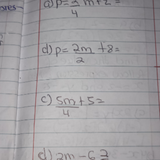 a) p= m+2=
d) p= 2m/2 +8=
c) 5m/4 +5=
d) 2m-6